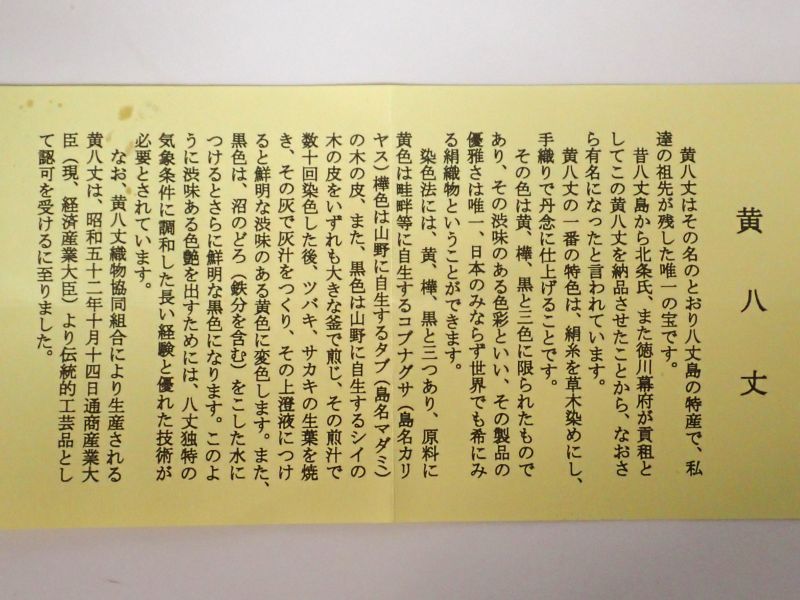 黄八丈
黄八丈はその名のとおり八丈島の特産で、私
達の祖先が残した唯一の宝です。
昔八丈島から北条氏、また徳川幕府が貢租と
してこの黄八丈を納品させたことから、なおさ
ら有名になったと言われています。
黄八丈の一番の特色は、絹糸を草木染めにし、
手織りで丹念に仕上げることです。
その色は黄、樺、黒と三色に限られたもので
あり、その渋味のある色彩といい、その製品の
優雅さは唯一、日本のみならず世界でも希にみ
る絹織物ということができます。
染色法には、黄、樺、黒と三つあり、原料に
黄色は畦畔等に自生するコブナグサ（島名カリ
ヤス）樺色は山野に自生するタブ（島名マダミ）
の木の皮、また、黒色は山野に自生するシイの
木の皮をいずれも大きな釜で煎じ、その煎汁で
数十回染色した後、ツバキ、サカキの生葉を焼
き、その灰で灰汁をつくり、その上澄液につけ
ると鮮明な渋味のある黄色に変色します。また、
黒色は、沼のどろ（鉄分を含む）をこした水に
つけるとさらに鮮明な黒色になります。このよ
うに渋味ある色艶を出すためには、八丈独特の
気象条件に調和した長い経験と優れた技術が
必要とされています。
なお、黄八丈織物協同組合により生産される
黄八丈は、昭和五十二年十月十四日通商産業大
臣（現、経済産業大臣）より伝統的工芸品とし
て認可を受けるに至りました。